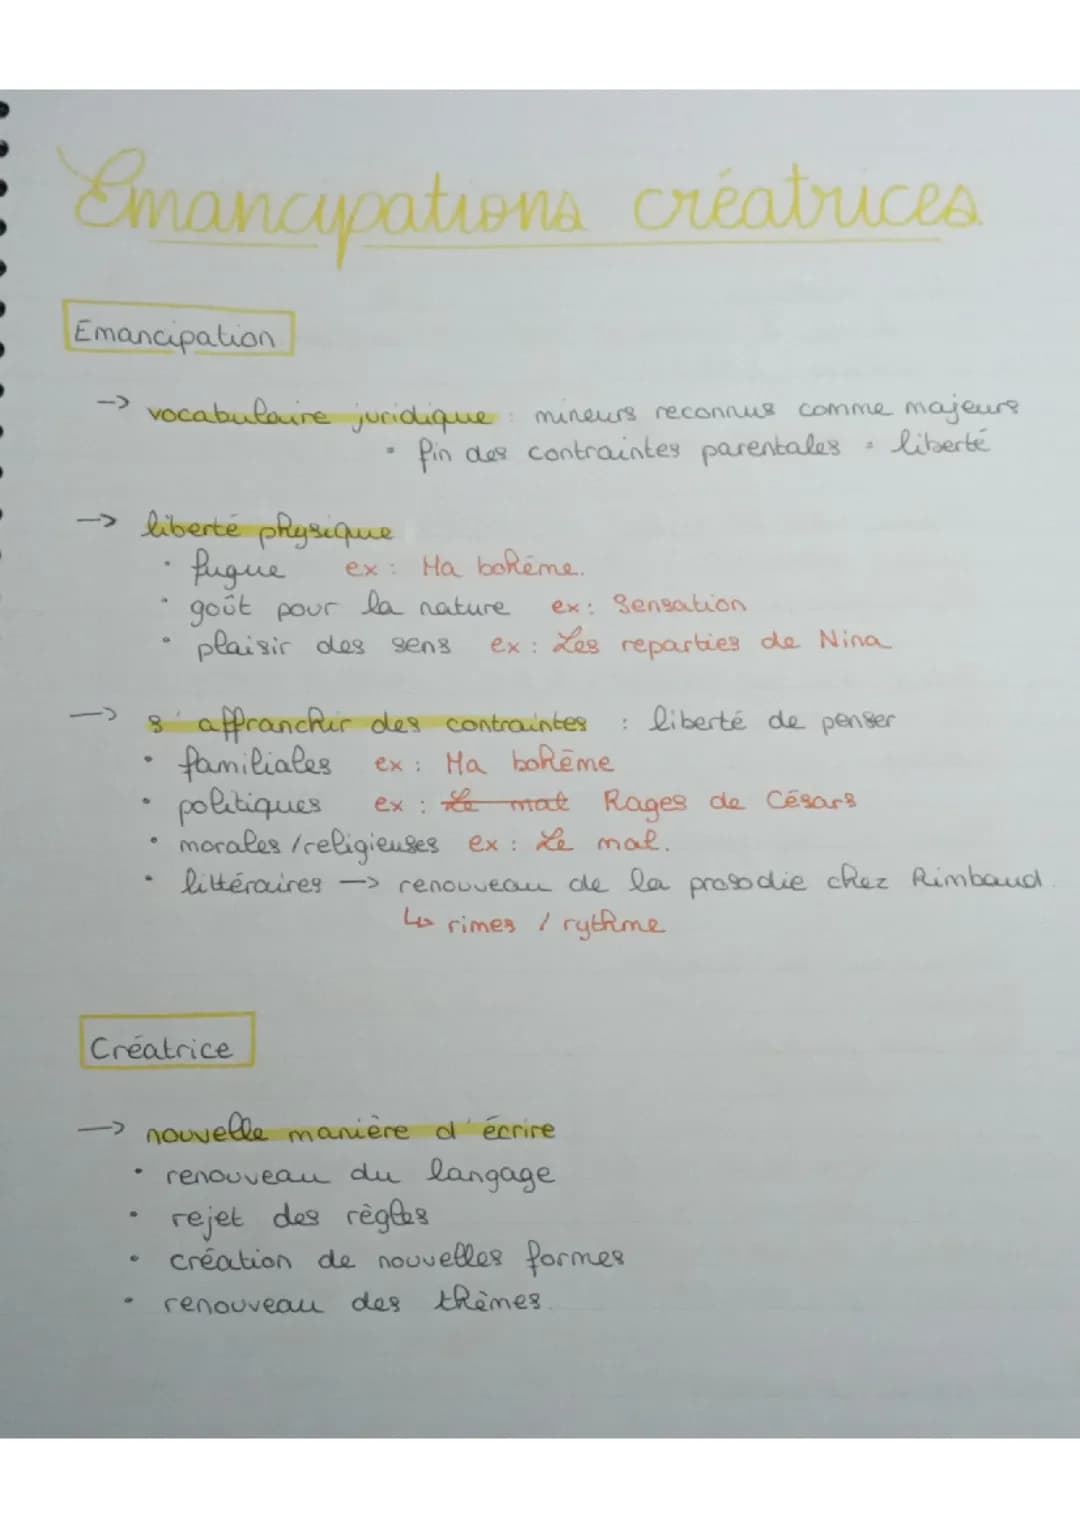 Emancipations créatrices
Emancipation
-> vocabulaire juridique : mineurs reconnus comme majeurs
• fin des contraintes parentales = liberté
-> liberté physique
• fugue ex : Ma bohême.
• goût pour la nature ex : Sensation
• plaisir des sens ex : Les reparties de Nina
-> s'affranchir des contraintes : liberté de penser
• familiales ex : Ma bohême
• politiques ex : Le mal Rages de Césars
• morales / religieuses ex : Le mal.
• littéraires -> renouveau de la prosodie chez Rimbaud.
↳ rimes / rythme
Créatrice
-> nouvelle manière d'écrire
• renouveau du langage
• rejet des règles
• création de nouvelles formes
• renouveau des thèmes.